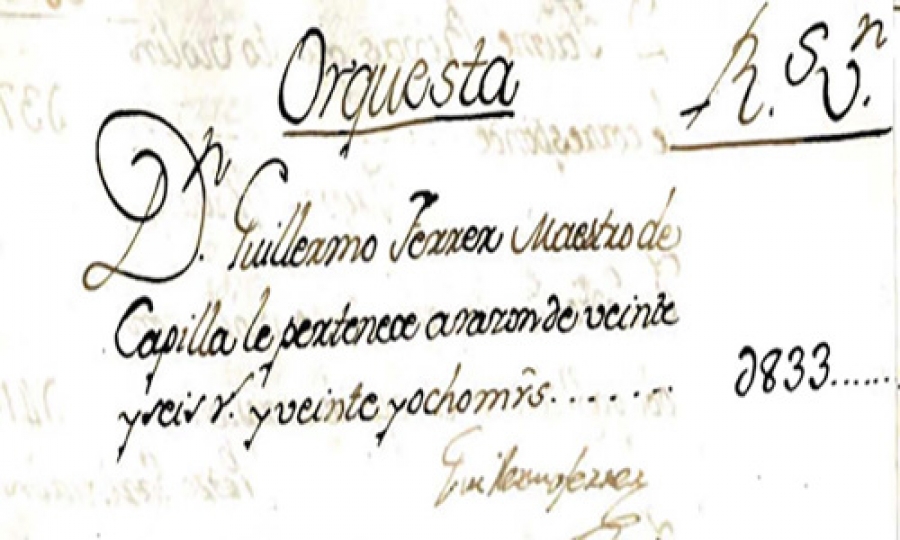 Orquesta
R. S. Vn.
Dn. Guillermo Ferrer Maestro de
Capilla le pertenece a razon de veinte
y seis r. y veinte y ocho mrs. . . . . . . .
d833.......
Guillermo Ferrer